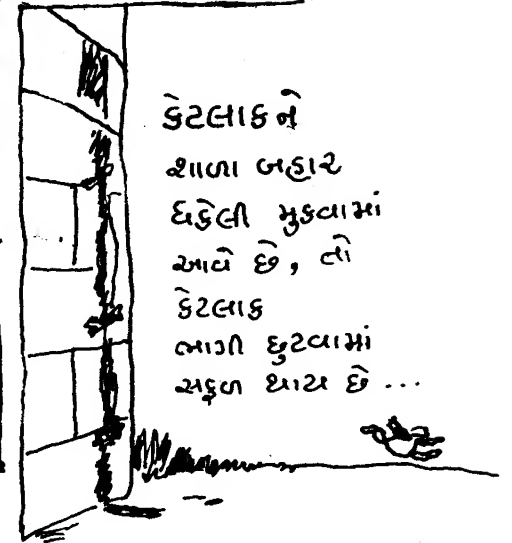 કેટલાકને
શાળા બહાર
ધકેલી મુકવામાં
આવે છે, તો
કેટલાક
ભાગી છુટવામાં
સફળ થાય છે ...